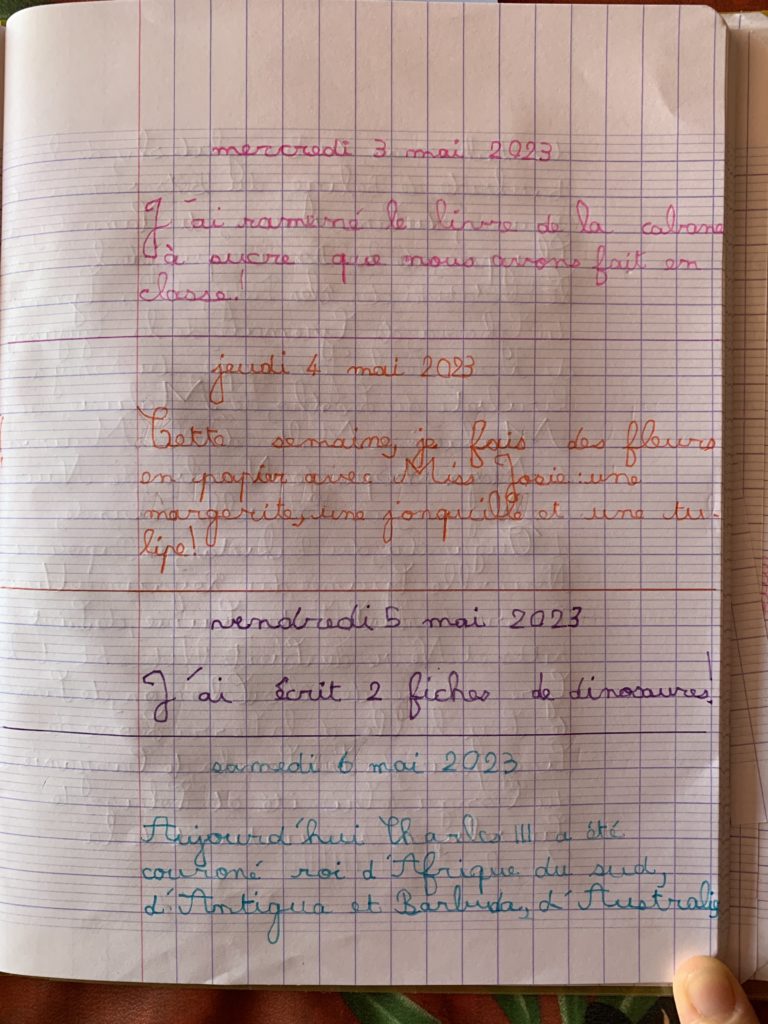 mercredi 3 mai 2023
J'ai ramené le livre de la cabane
à sucre que nous avons fait en
classe!
jeudi 4 mai 2023
Cette semaine, je fais des fleurs
en papier avec Miss Josie : une
margerite, une jonquille et une tu-
lipe!
vendredi 5 mai 2023
J'ai écrit 2 fiches de dinosaures!
samedi 6 mai 2023
Aujourd'hui Charles III a été
couroné roi d'Afrique du sud,
d'Antigua et Barbuda, d'Australie